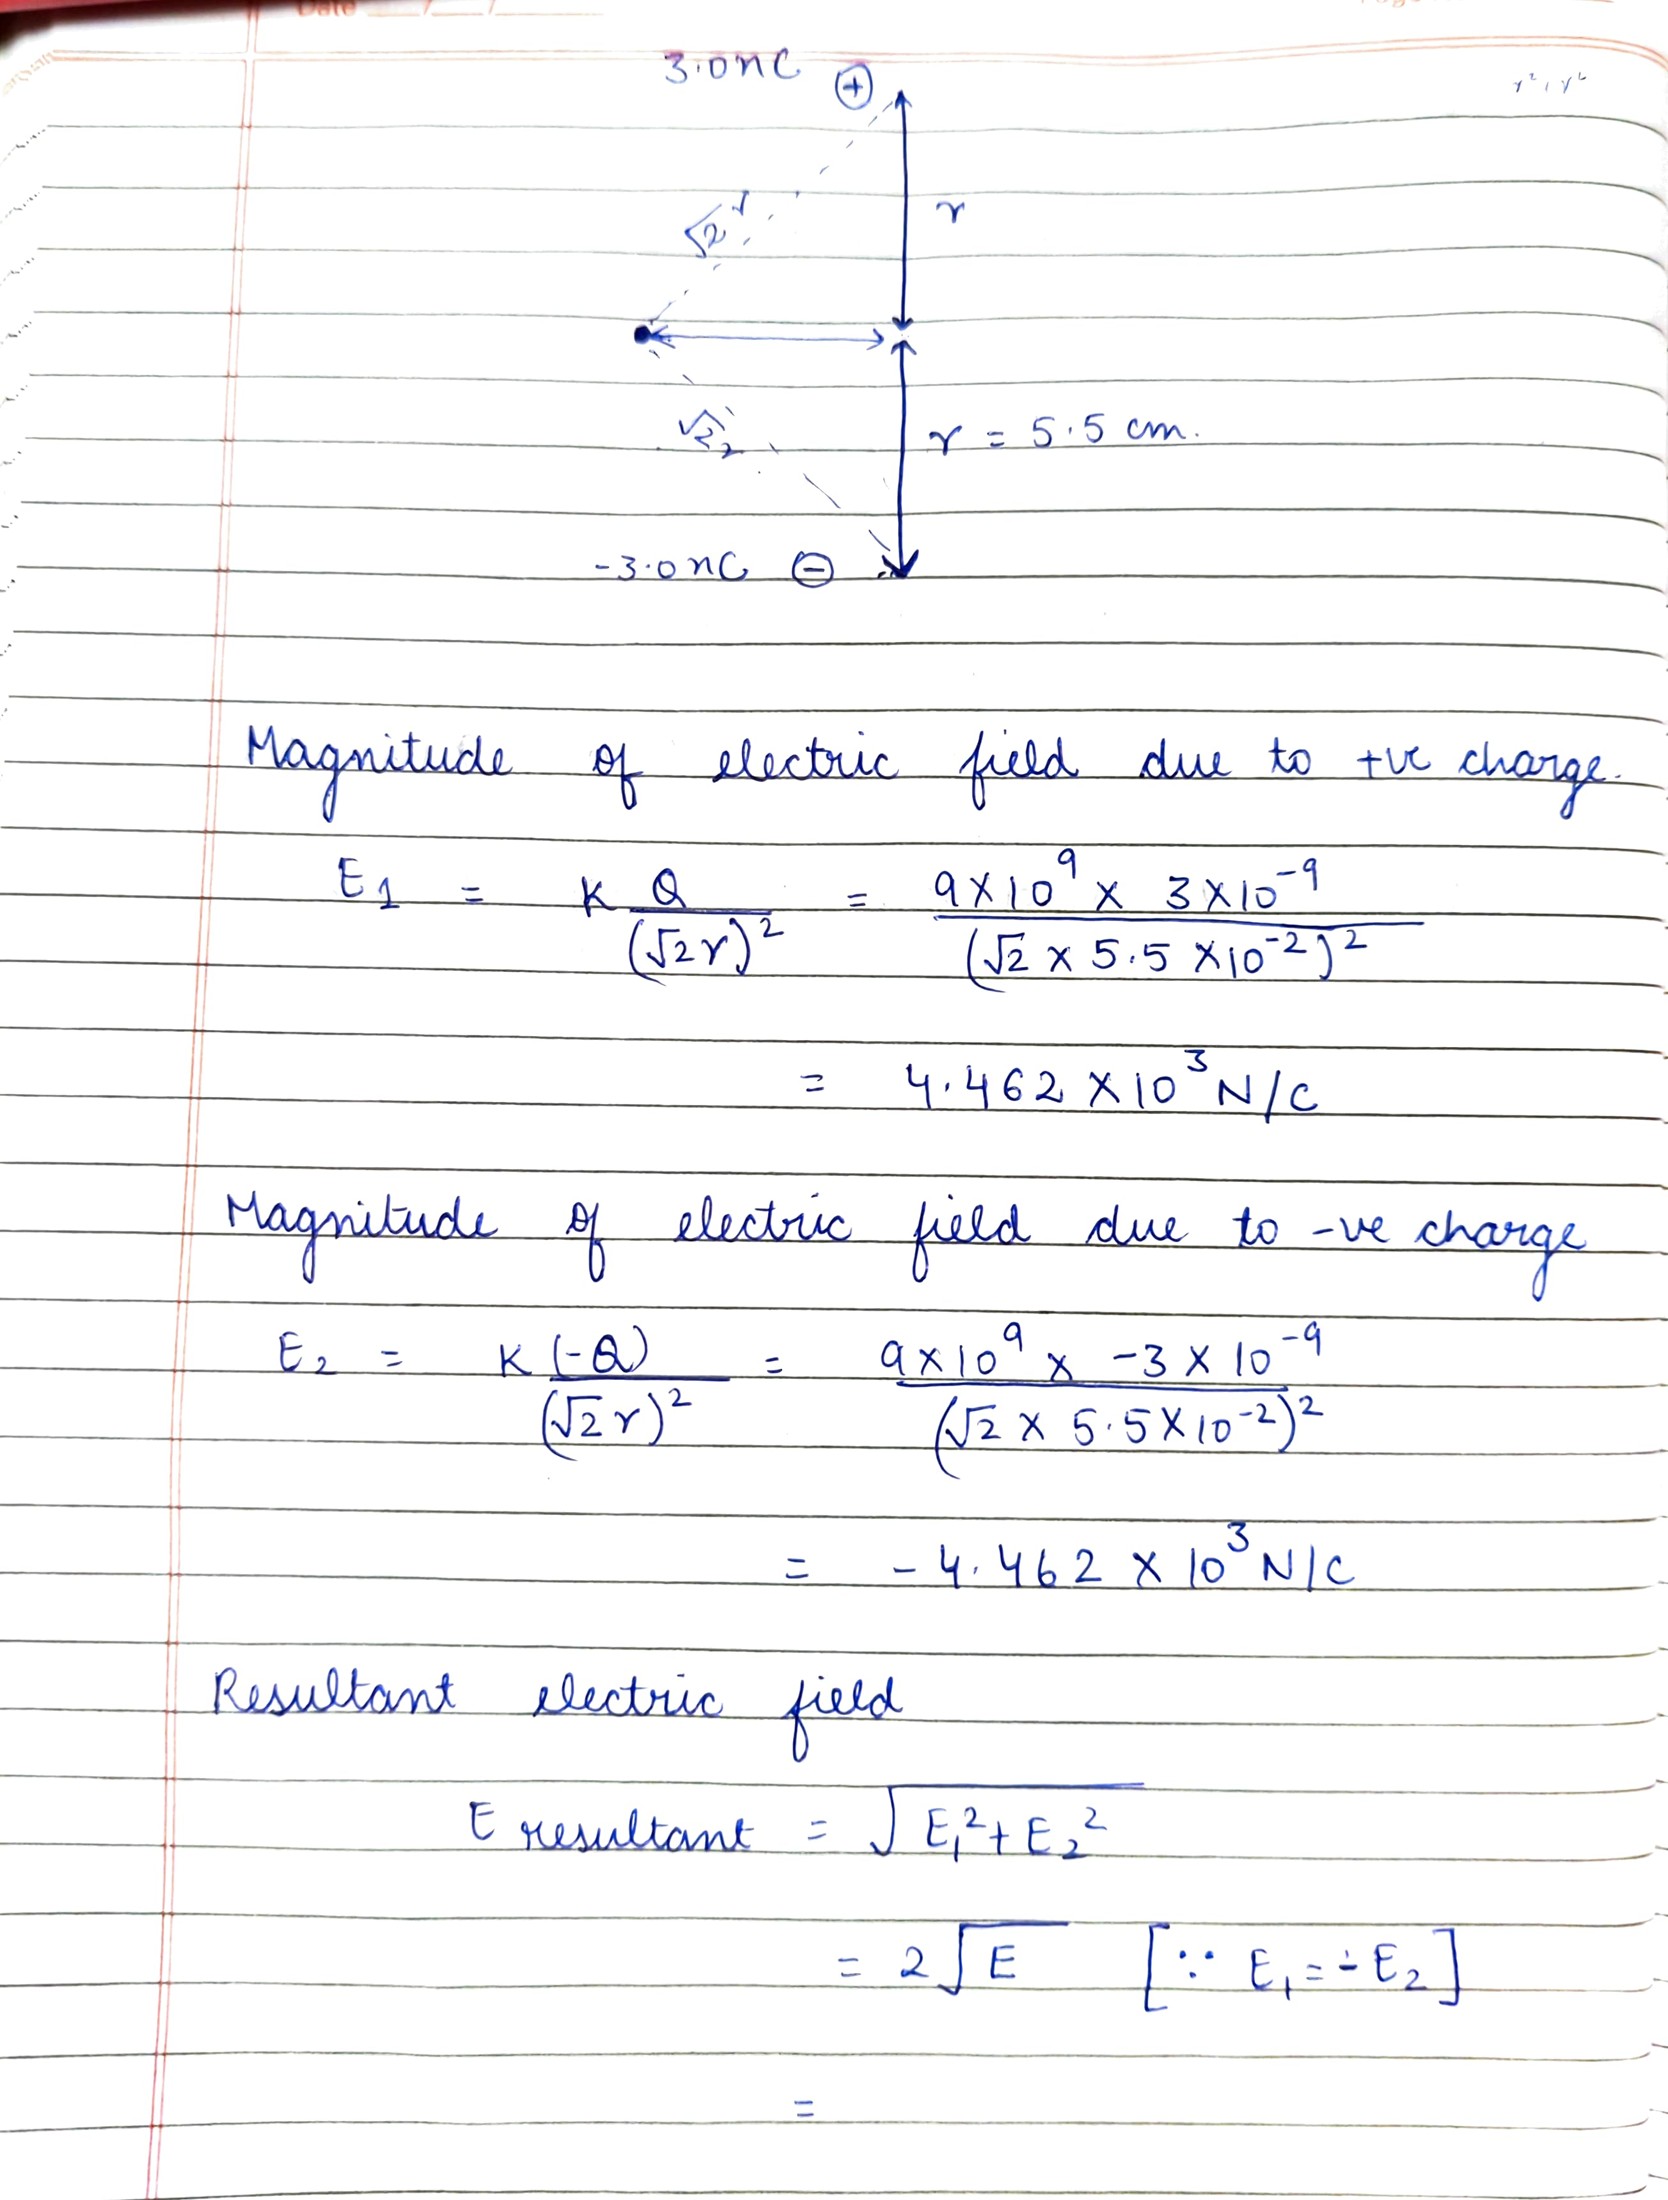 Date
3.0nC ⊕
√2 r
r
√2
r = 5.5 cm.
-3.0nC ⊖
Magnitude of electric field due to +ve charge.
E₁ = K Q/(√2r)² = 9×10⁹ × 3×10⁻⁹/(√2 × 5.5 ×10⁻²)²
= 4.462 ×10³ N/C
Magnitude of electric field due to -ve charge
E₂ = K(-Q)/(√2r)² = 9×10⁹ × -3×10⁻⁹/(√2 × 5.5×10⁻²)²
= -4.462 × 10³ N/C
Resultant electric field
E resultant = √(E₁²+E₂²)
= 2√E [∵ E₁ = -E₂]
=